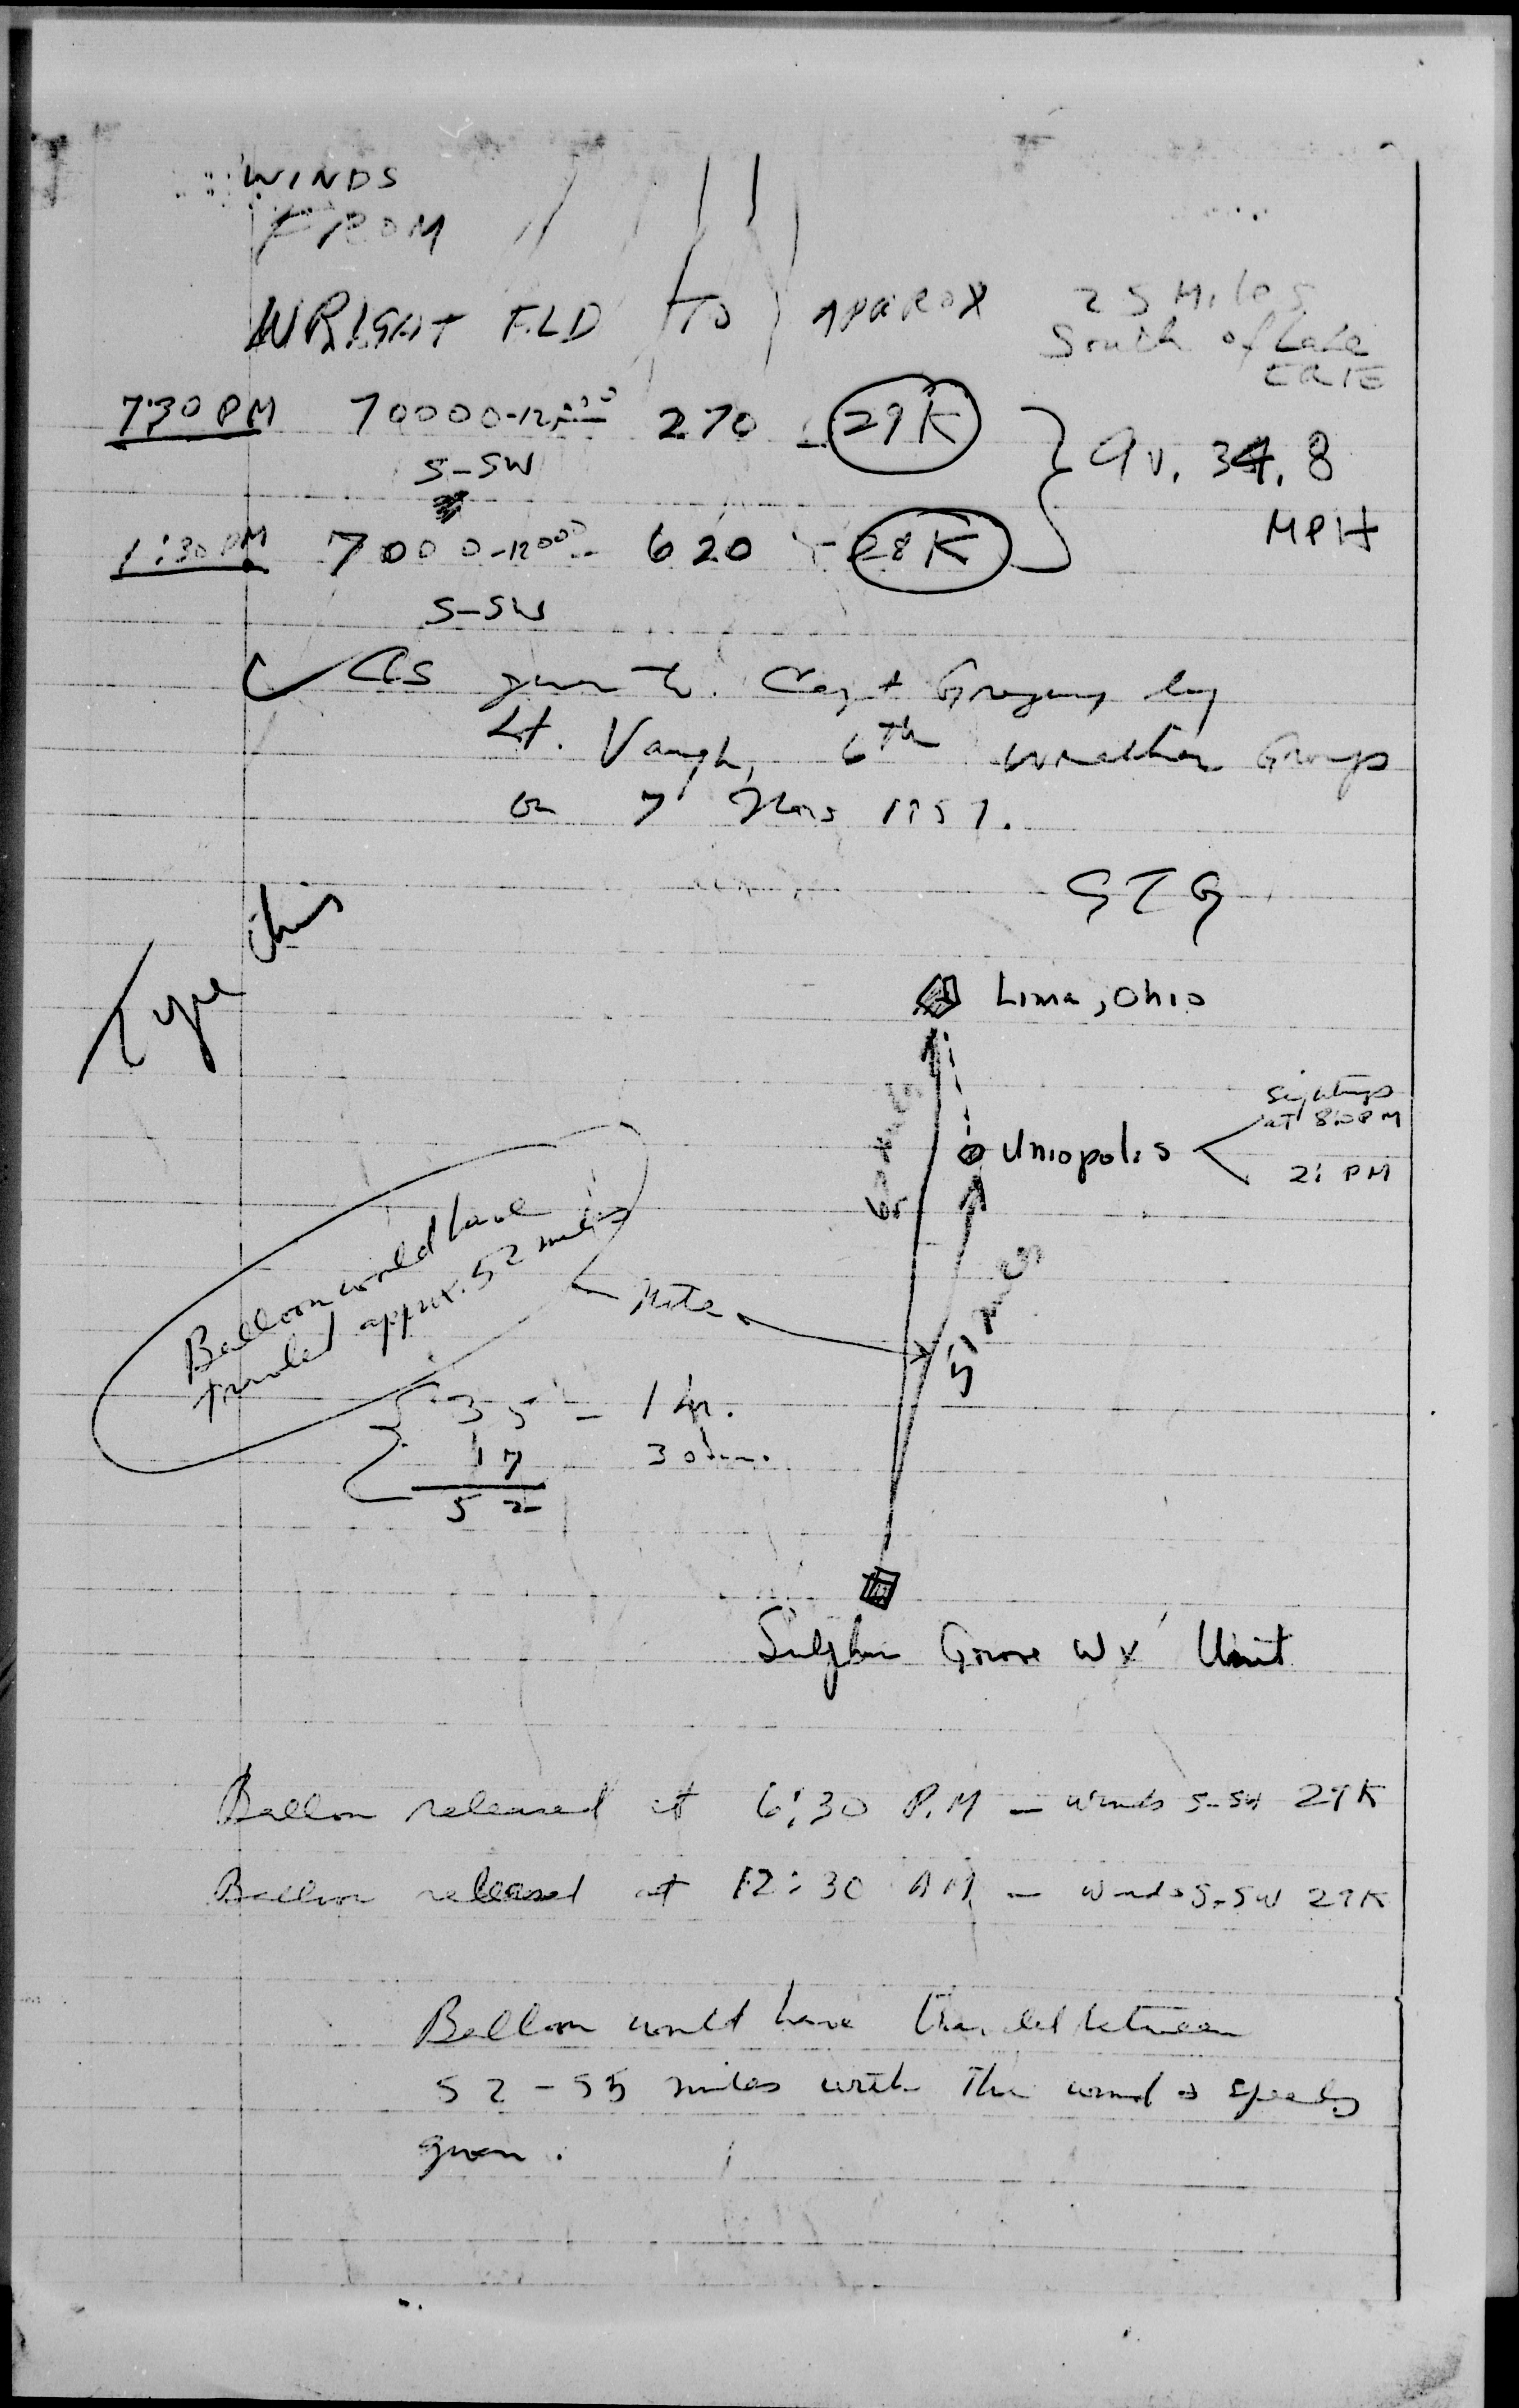 WINDS
FROM
WRIGHT FLD TO APPROX 25 Miles
South of Lake
ERIE
7:30 PM 70000-12000 270 29K
S-SW
Av. 34.8
MPH
1:30 PM 7000-12000 620 28K
S-SW
As given to Capt Gregory by
Lt. Vaugh, 6th Weather Group
on 7 Nov 1957.
GTG
Type this
Lima, Ohio
Sightings
at 8:0 PM
Uniopolis
2: PM
Balloon would have
traveled approx. 52 miles
Note
51 miles
35 - 1 hr.
17 30 min.
52
Sulphur Grove Wx Unit
Balloon released at 6:30 P.M - winds S-SW 29K
Balloon released at 12:30 AM - winds S-SW 29K
Balloon would have traveled between
52-55 miles with the winds speeds
given.